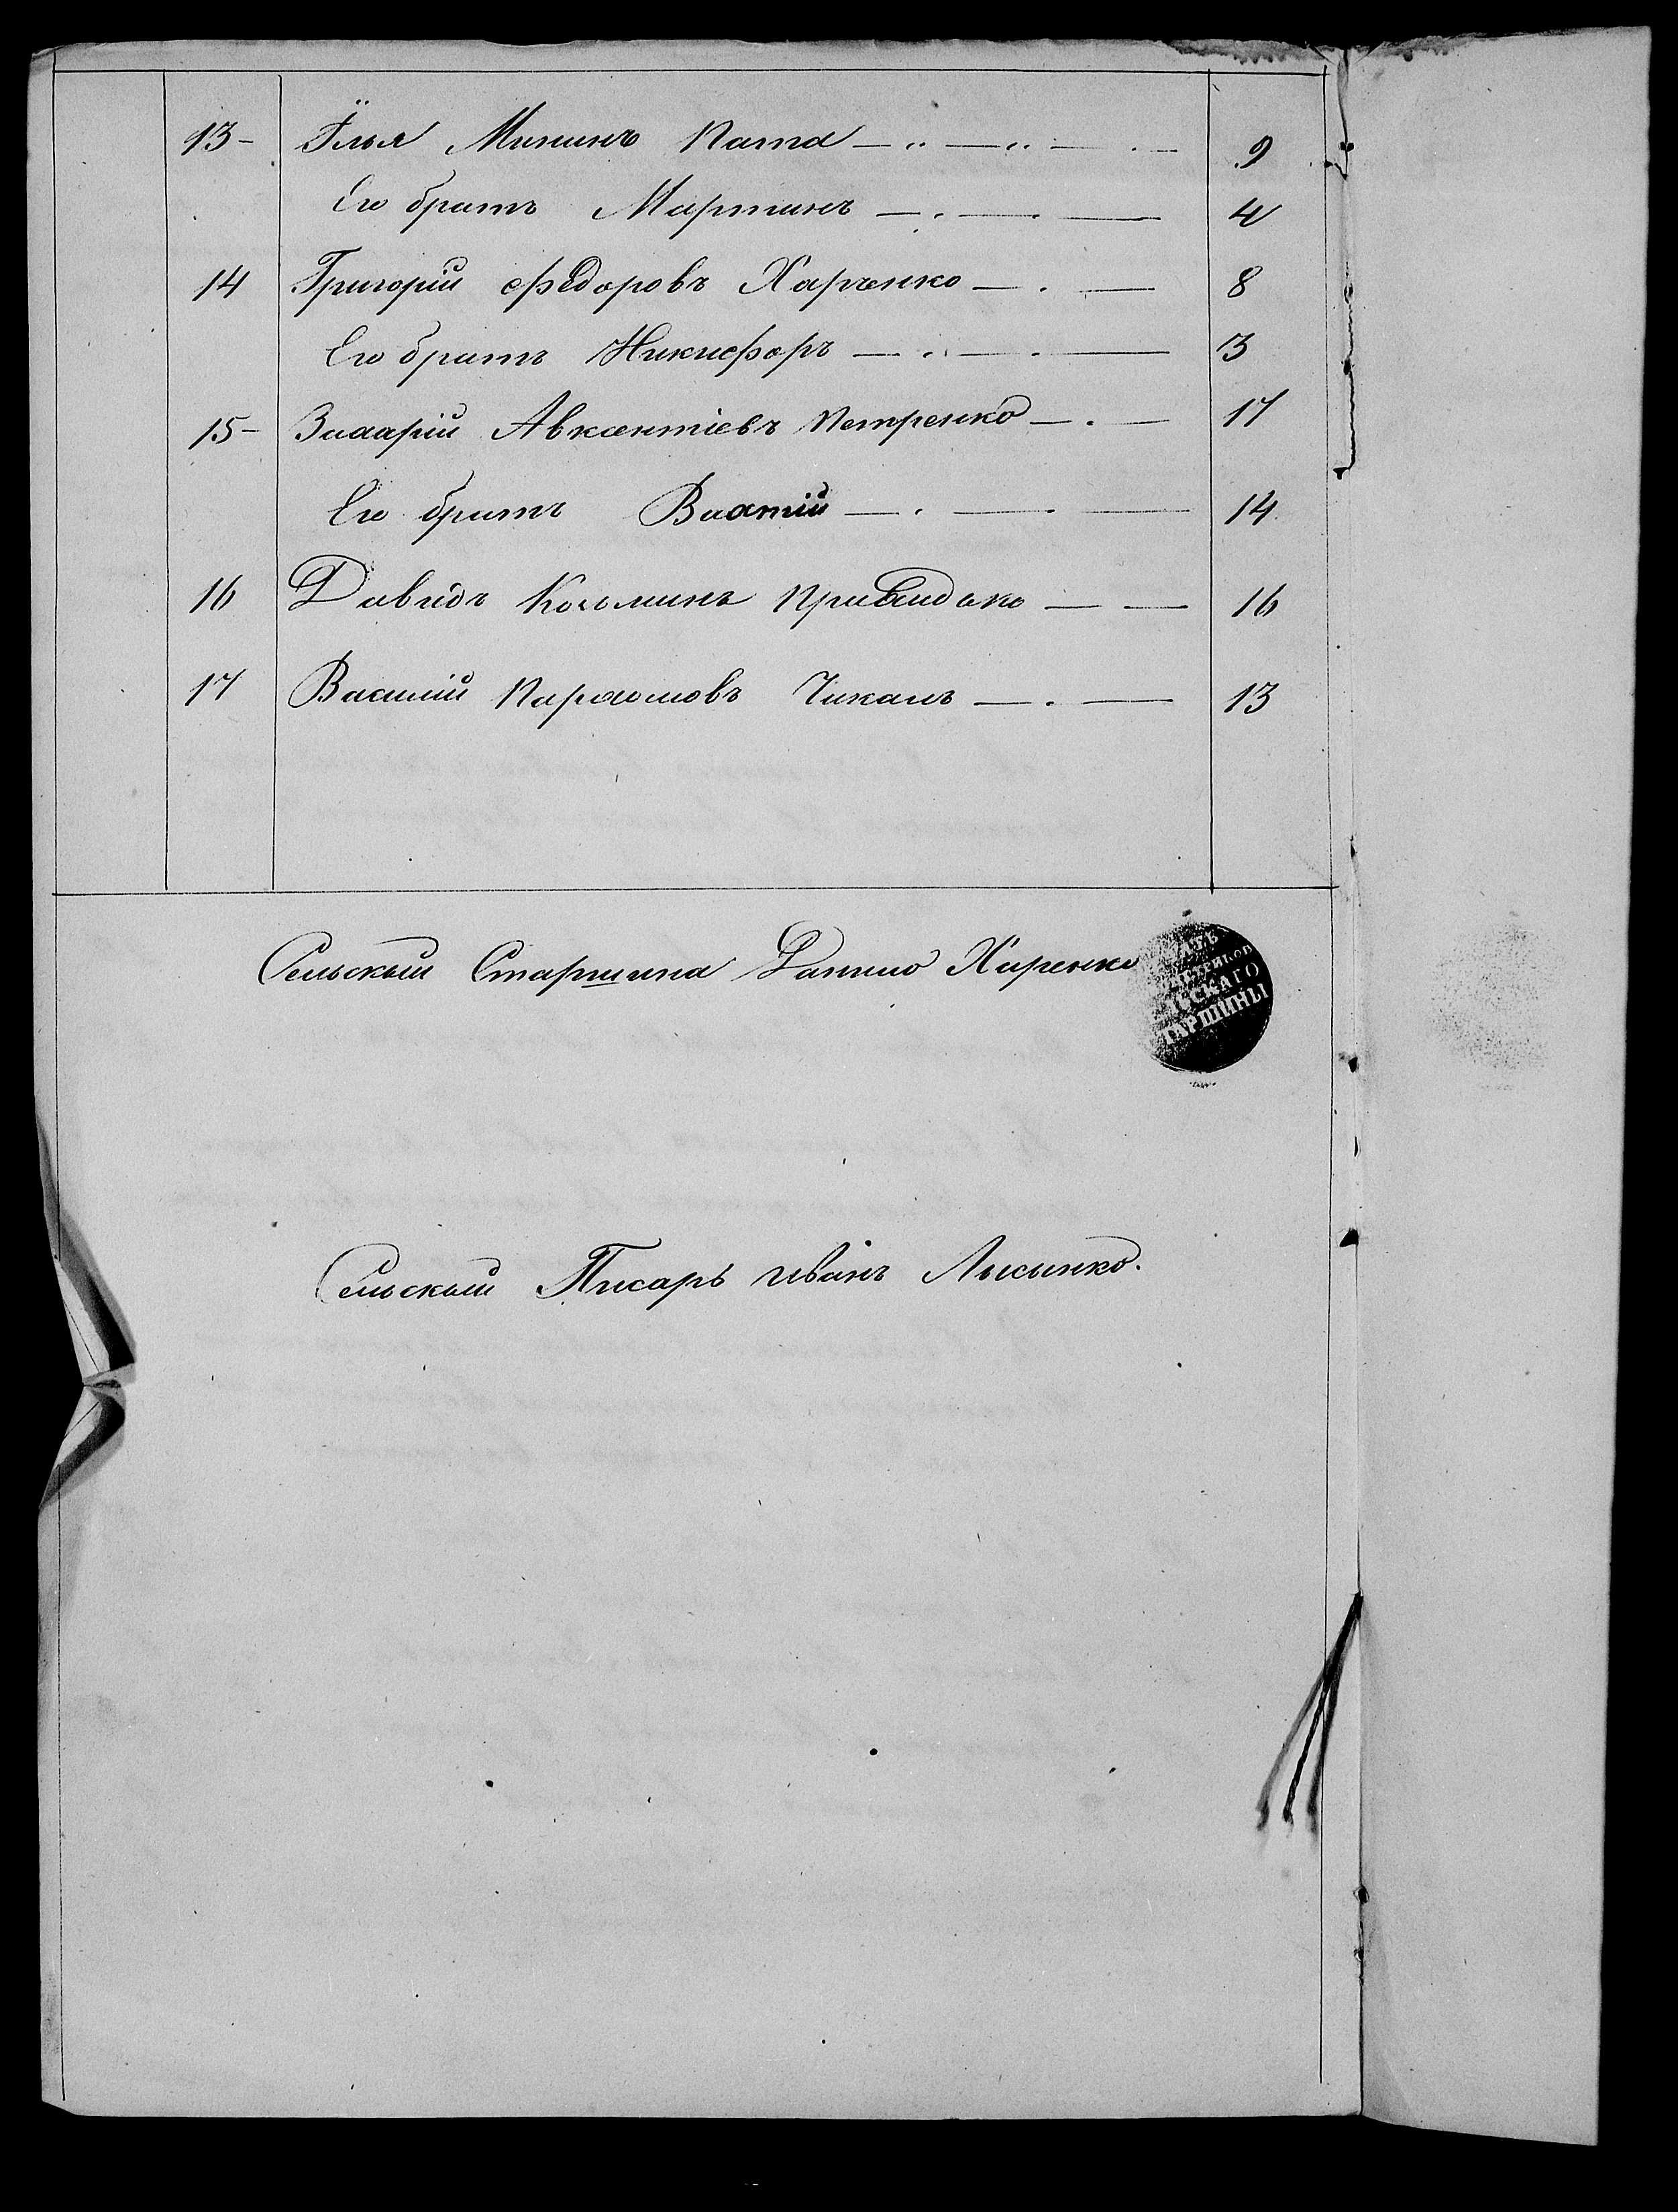 13- Илья Мининъ Пата 9
Его братъ Мартинъ 4
14 Григорій Федоровъ Харченко 8
Его братъ Никифоръ 3
15- Захарій Авксентіевъ Петренко 17
Его братъ 14
16 Давидъ Козьминъ 16
17 Василій Пархомовъ Чикалъ 13
Сельскый Старшина Данило Харенко
СКАГО
ТАРШИНЫ
Сельскый Писарь иванъ Лысынко.